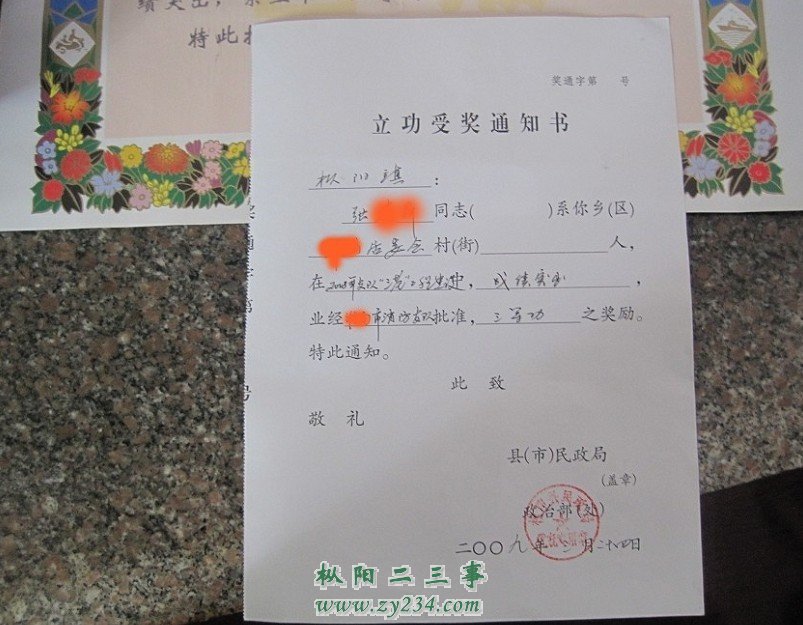 绩突出，
特此
奖通字第 号
立功受奖通知书
枞川镇：
张 同志( )系你乡(区)
居委会村(街) 人，
在 支队"三基"工程 建，成绩突出
业经 市消防支队批准，三等功之奖励。
特此通知。
此 致
敬 礼
县(市)民政局
(盖章)
政治部(处)
二〇〇九年 月二十四日
枞阳二三事
www.zy234.com